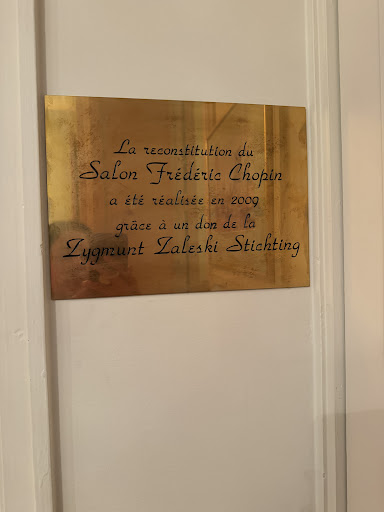 La reconstitution du
Salon Frédéric Chopin
a été réalisée en 2009
grâce à un don de la
Zygmunt Zaleski Stichting